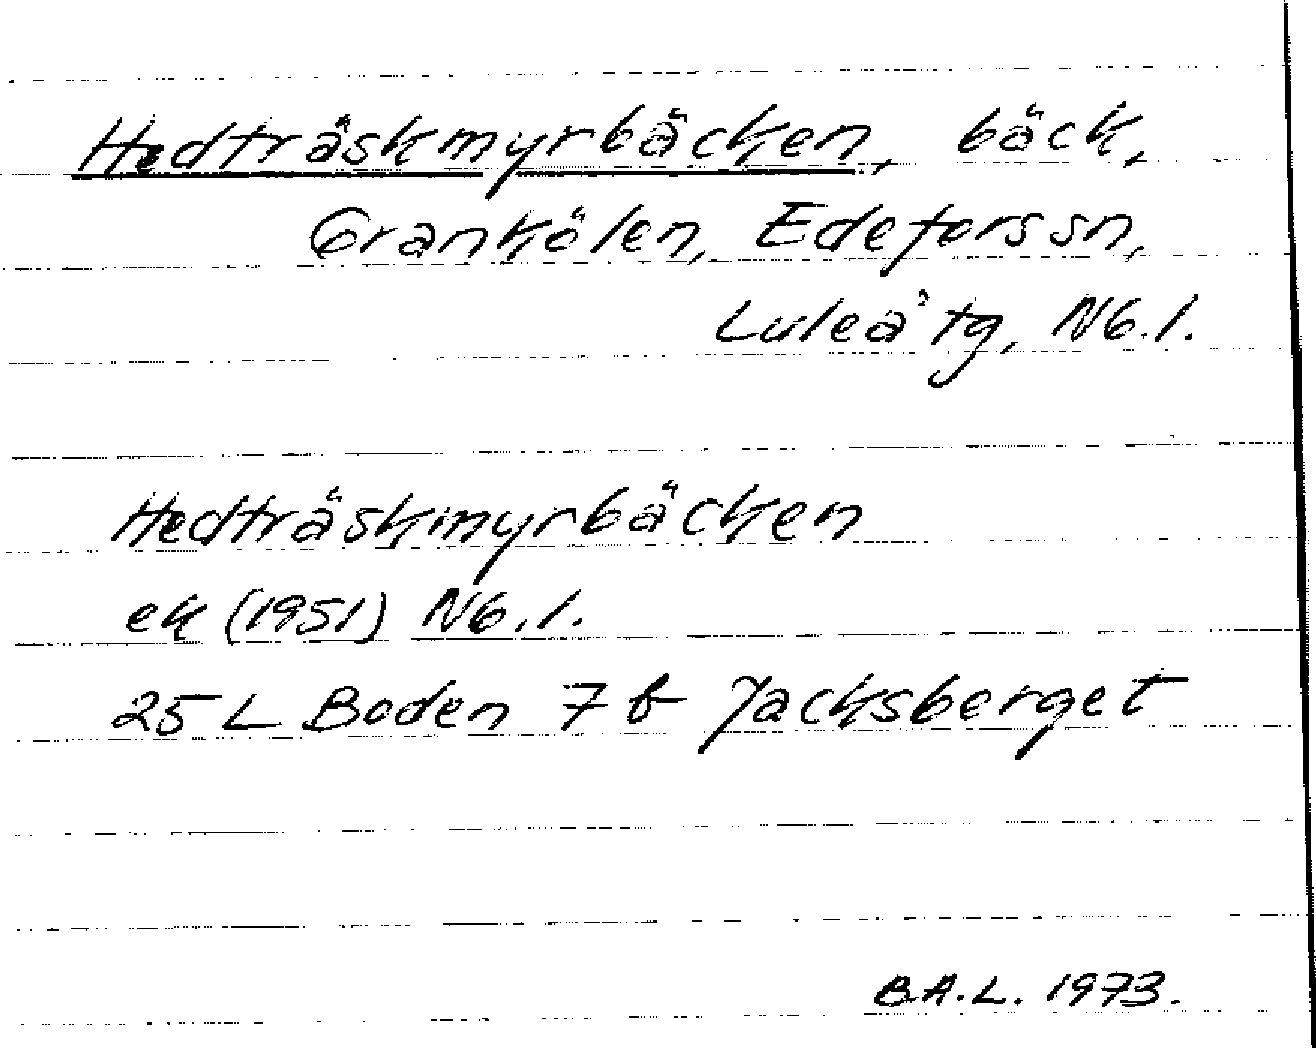 Hedträskmyrbäcken, bäck,
Grankölen, Edeforssn,
Luleå tg, Nb.l.
Hedträskmyrbäcken
ek (1951) Nb.l.
25 L Boden 7 b Jacksberget
B.A.L. 1973.